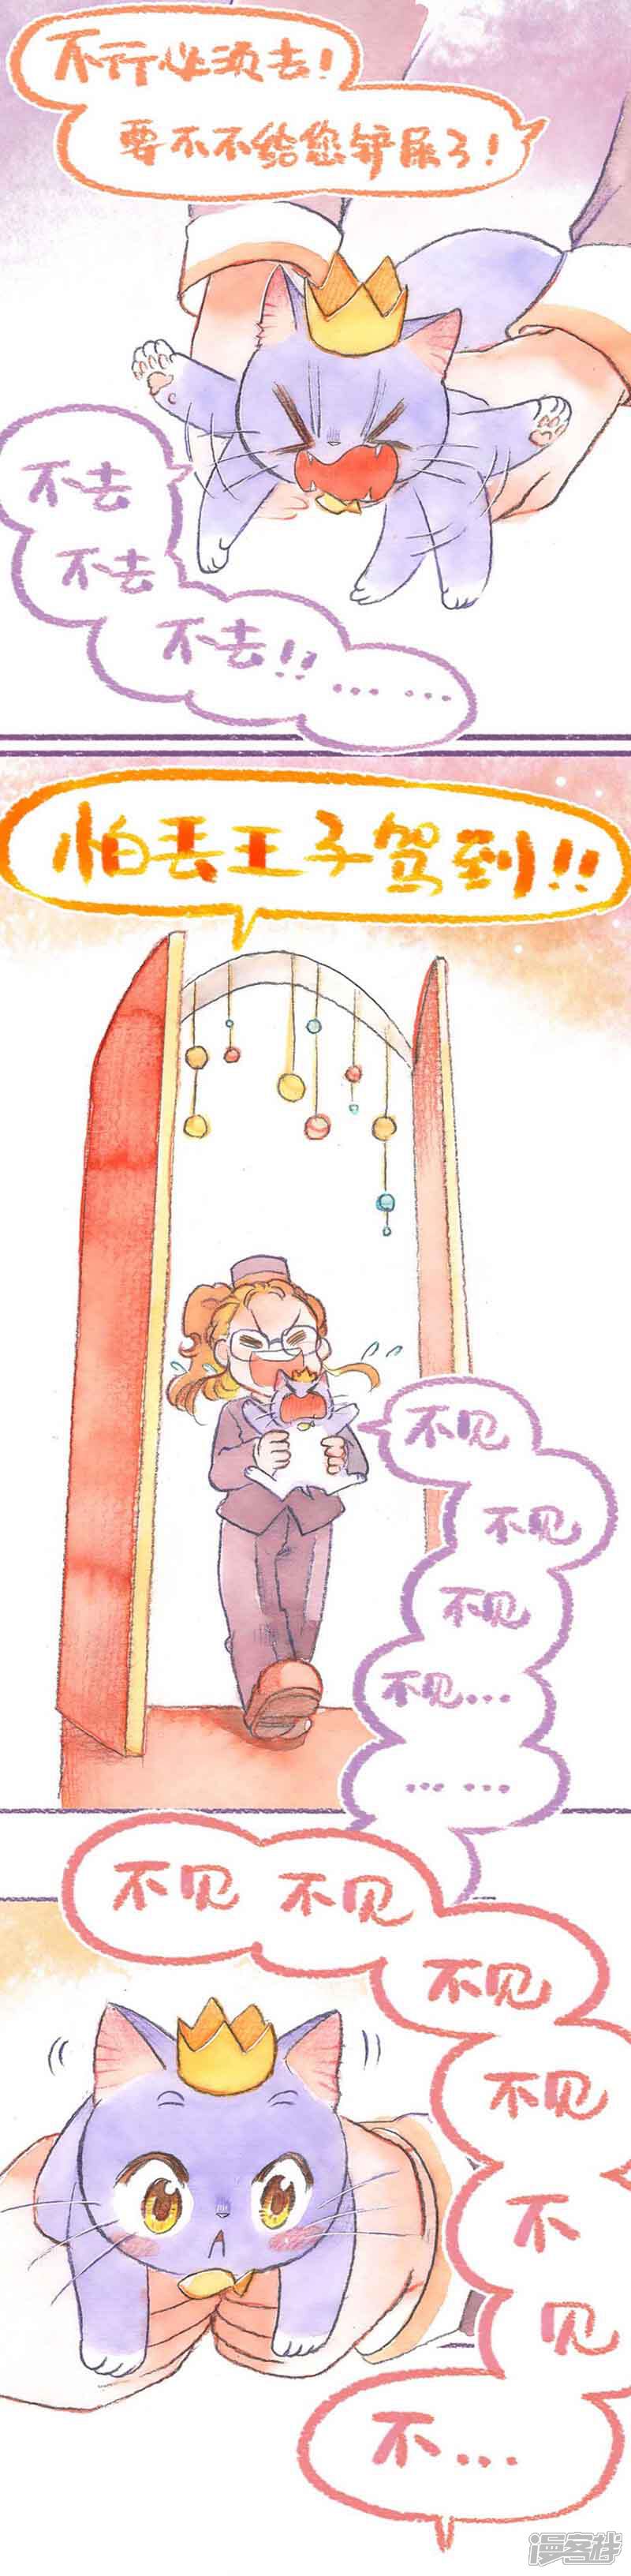 不行必须去!
要不不给您铲屎了!
不去
不去
不去!!……
怕丢王子驾到!!
不见
不见
不见
不见…
……
不见 不见
不见
不见
不
见
不…
漫客栈